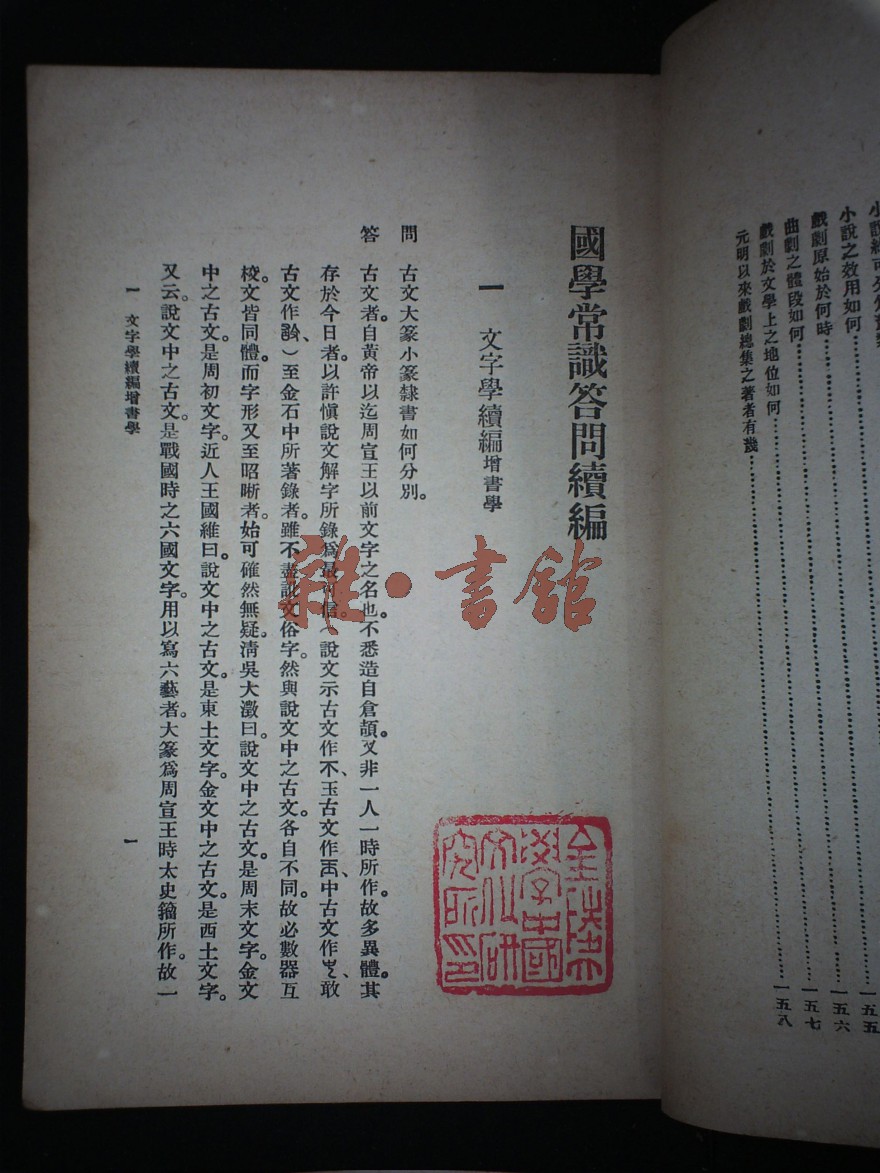 小說之效用如何 一五五
戲劇原始於何時 一五六
曲劇之體段如何 一五七
戲劇於文學上之地位如何
元明以來戲劇總集之著者有幾 一五八
國學常識答問續編
一 文字學續編增書學
問 古文大篆小篆隸書如何分別。
答 古文者。自黃帝以迄周宣王以前文字之名也。不悉造自倉頡。又非一人一時所作。故多異體。其
存於今日者。以許愼說文解字所錄爲最可信。說文示古文作 、玉古文作 、中古文作 、敢
古文作 )至金石中所著錄者。雖不盡說文俗字。然與說文中之古文。各自不同。故必數器互
校。文皆同體。而字形又至昭晰者。始可確然無疑。淸吳大澂曰。說文中之古文。是周末文字。金文
中之古文。是周初文字。近人王國維曰。說文中之古文。是東土文字。金文中之古文。是西土文字。
又云。說文中之古文。是戰國時之六國文字。用以寫六藝者。大篆爲周宣王時太史籒所作。故一
一 文字學續編增書學
一
雜·書館
金陵大學中國文化研究所印